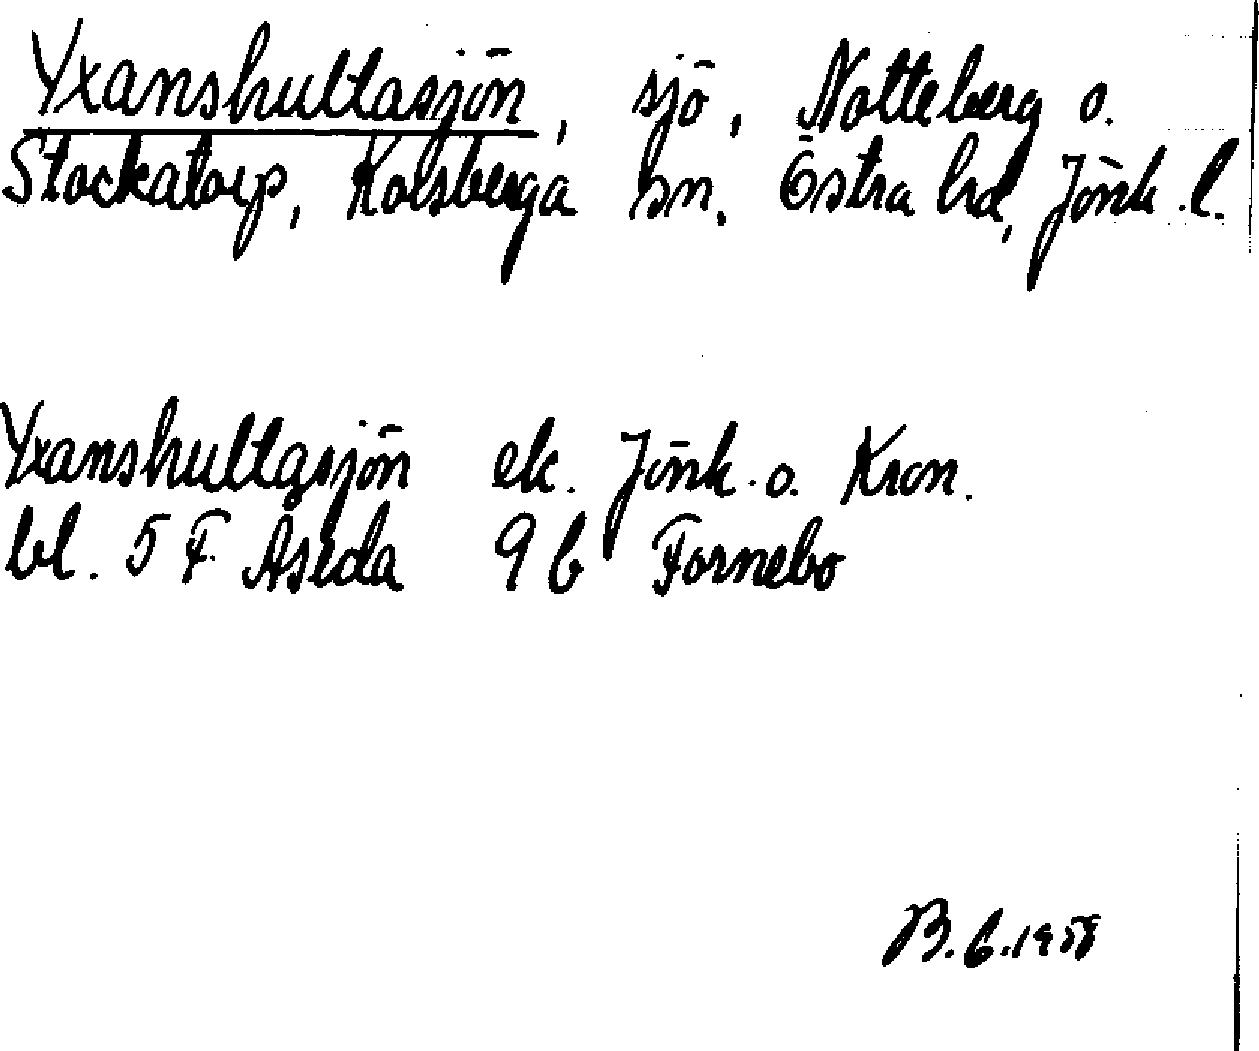 Yxanshultasjön, sjö, Notteberg o.
Stockatorp, Korsberga sn, Östra hd, Jönk.l.
Yxanshultasjön ek. Jönk. o. Kron.
bl. 5 F Åseda 9 b Fornebo
B.G.1958